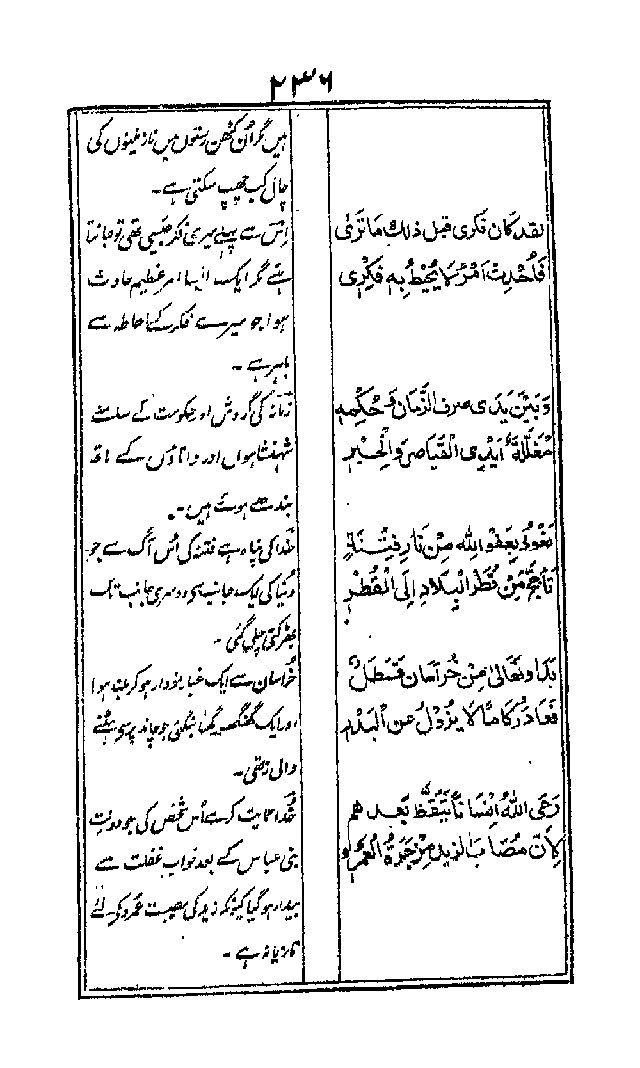 ۲۳۶
لقد كان فكرى قبل ذلك ما ترى
فَأُحْدِثَ اَمْرٌ لَا يُحِيْطُ بِهٖ فِكْرِى
وَبَيْنَ يَدَى صرف الزَّمان وَحُكْمِهٖ
مُغَلَّلَةٌ اَيْدِى الْقَيَاصِرِ وَالْ
نَعُوْذُ بِعَفْوِ اللهِ مِنْ نَارِ فِتْنَةٍ
تَأَجَّجُ مِنْ قُطْرِ الْبِلَادِ اِلَى الْقُطْرِ
بَدَا وتَعَالىٰ مِنْ خُرَاسَان قَسْطَلٌ
فَعَادَ رُكَامًا لَا يَزُوْلُ عَنِ الْبَدْرِ
رَعَى اللهُ اِنْسَانًا تَيَقَّظَ بَعدهم
لِاَنَّ مُصَابَ الزيد مَزْجَرَةُ الْعَمْرو
ہیں مگر ان کٹھن رستوں میں نازنینوں کی
چال کب چھپ سکتی ہے۔
اس سے پہلے میری فکر جیسی تھی تو جانتا
ہے مگر ایک ایسا امر عظیم حادث
ہوا جو میرے فکر کے احاطہ سے
باہر ہے۔
زمانہ کی گردش اور حکومت کے سامنے
شہنشاہوں اور داناؤں کے ہاتھ
بندھے ہوئے ہیں۔
خدا کی پناہ ہے فتنہ کی اُس آگ سے جو
دنیا کی ایک جانب سے دوسری جانب تک
بھڑکتی چلی گئی۔
خراسان سے ایک غبار نمودار ہو کر بلند ہوا
اور ایک گھنگھور گھٹا بنگئی جو چاند پر سے ہٹنے
والی نہ تھی۔
خدا حمایت کرے اُس شخص کی جو دولت
بنی عباس کے بعد خواب غفلت سے
بیدار ہو گیا کیونکہ زید کی مصیبت عمرو کے لئے
تازیانہ ہے۔